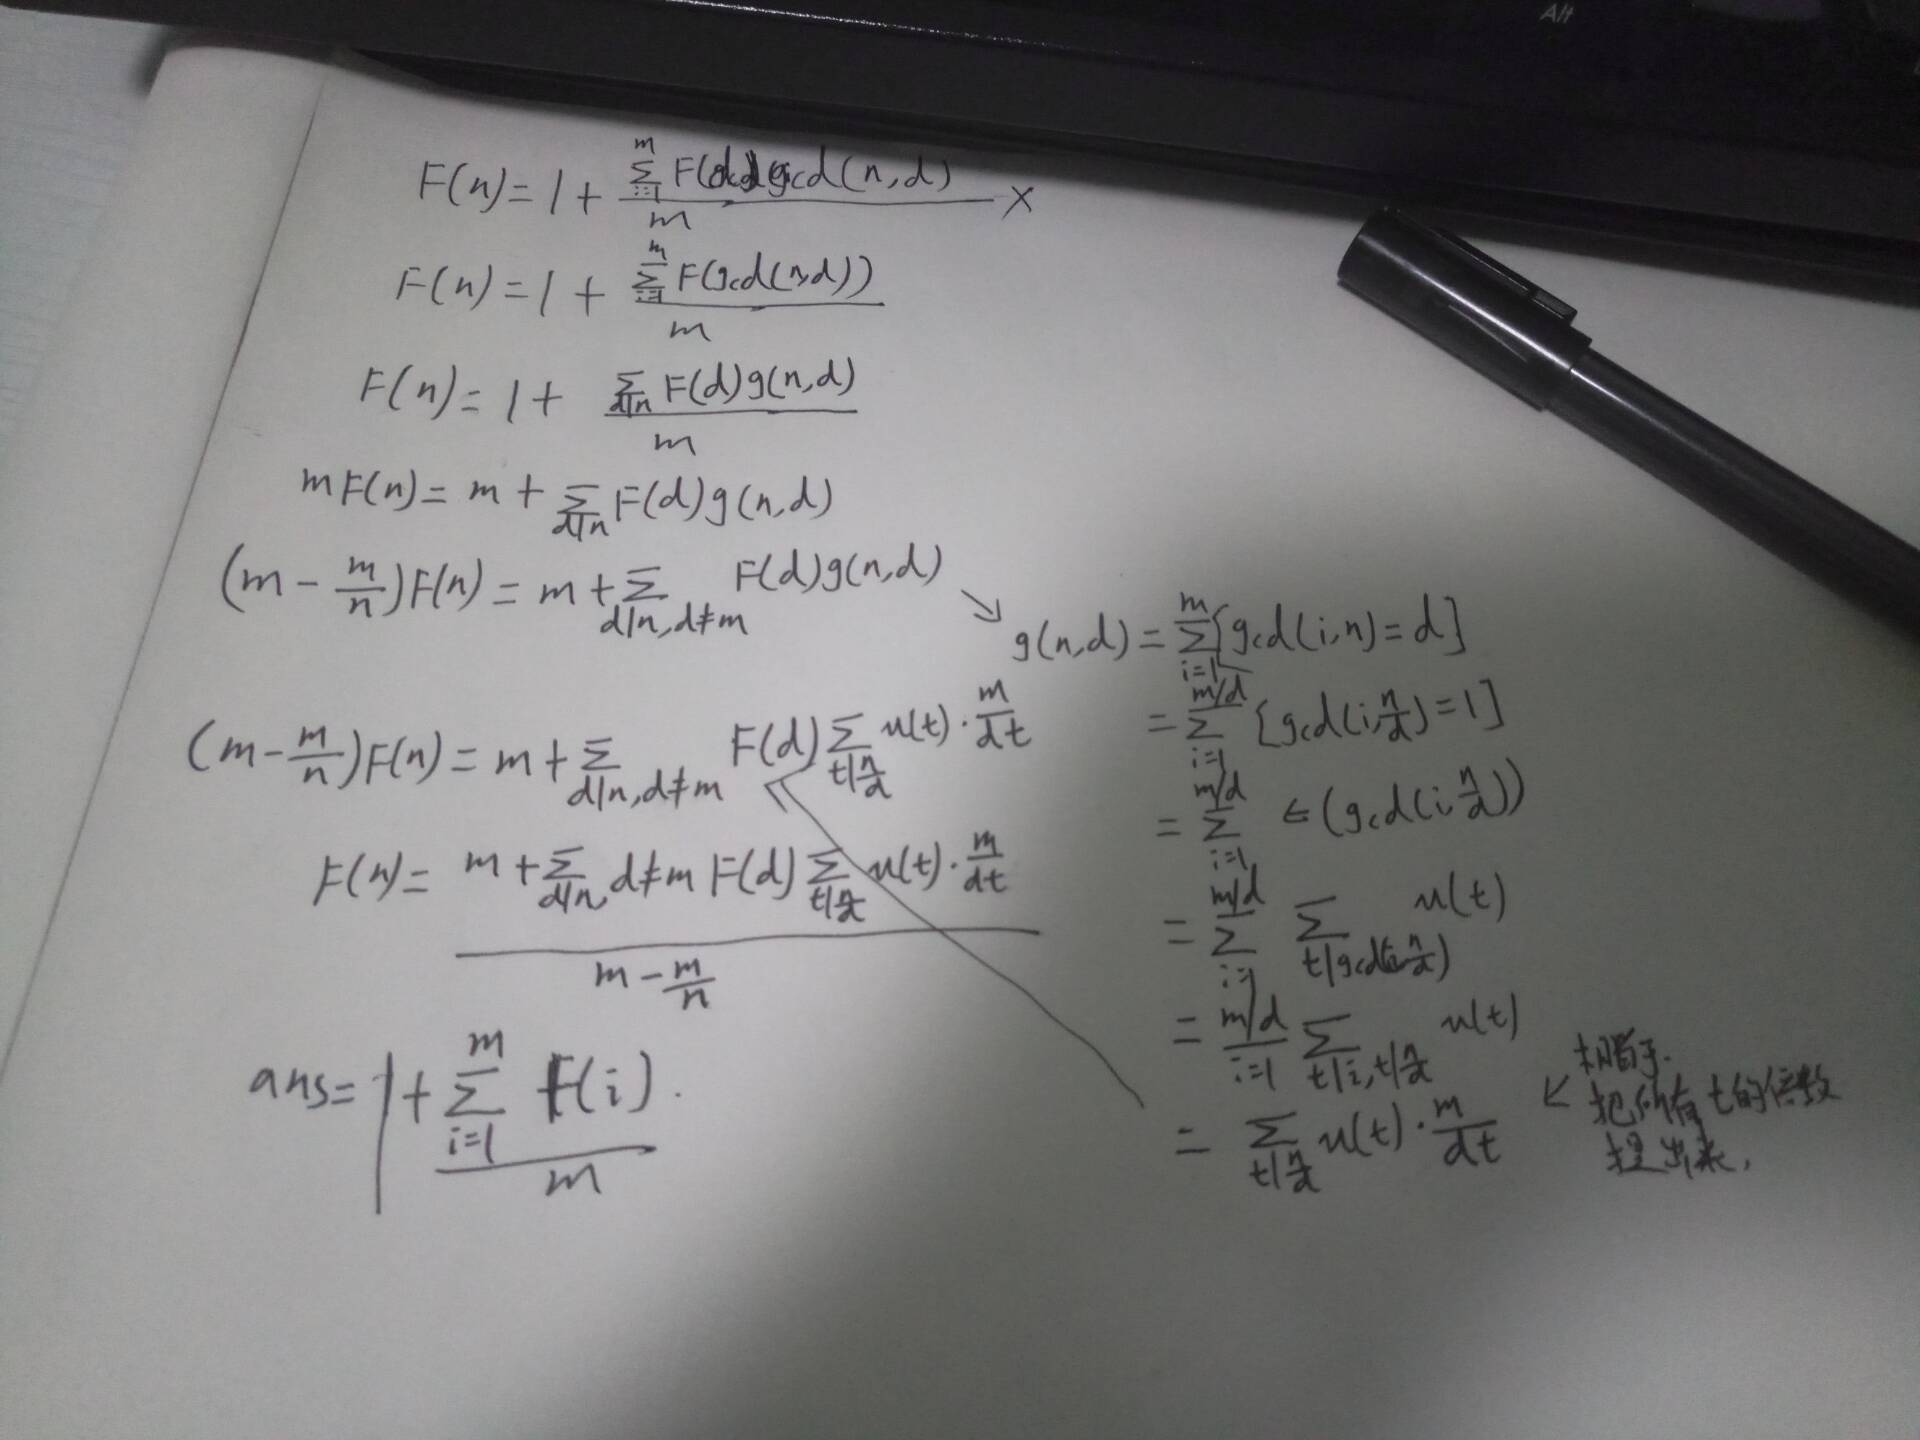 Alt
F(n) = 1 + \frac{\sum_{i=1}^{m} F(d)gcd(n,d)}{m} ×
F(n) = 1 + \frac{\sum_{i=1}^{m} F(gcd(n,d))}{m}
F(n) = 1 + \frac{\sum_{d|n} F(d)g(n,d)}{m}
mF(n) = m + \sum_{d|n} F(d)g(n,d)
(m - \frac{m}{n})F(n) = m + \sum_{d|n,d≠m} F(d)g(n,d) ↘
(m - \frac{m}{n})F(n) = m + \sum_{d|n,d≠m} F(d) \sum_{t|\frac{n}{d}} u(t)·\frac{m}{dt}
F(n) = \frac{m + \sum_{d|n,} d≠m F(d) \sum_{t|\frac{n}{d}} u(t)·\frac{m}{dt}}{m - \frac{m}{n}}
ans = 1 + \frac{\sum_{i=1}^{m} F(i).}{m}
g(n,d) = \sum_{i=1}^{m} [gcd(i,n)=d]
= \sum_{i=1}^{m/d} [gcd(i,\frac{n}{d})=1]
= \sum_{i=1}^{m/d} ε(gcd(i,\frac{n}{d}))
= \sum_{i=1}^{m/d} \sum_{t|gcd(i,\frac{n}{d})} u(t)
= \frac{m/d}{i=1} \sum_{t|i,t|\frac{n}{d}} u(t)
= \sum_{t|\frac{n}{d}} u(t)·\frac{m}{dt} ←
相当于.
把所有t的倍数
提出来,